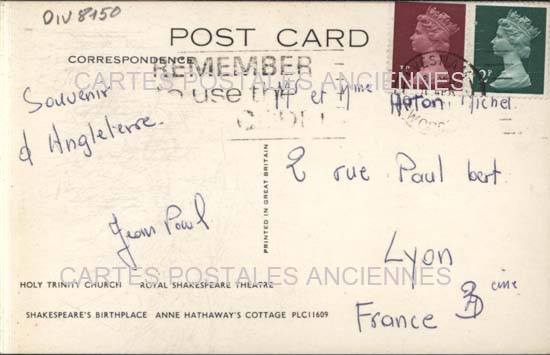 DIV 8150
POST CARD
CORRESPONDENCE
REMEMBER
to use the
CARTES POSTALES ANCIENNES
Souvenir
d'Angleterre.
Jean Paul
Mr et Mme Michel.
2 rue Paul bert.
Lyon
3 eme
France
PRINTED IN GREAT BRITAIN
CARTES POSTALES ANCIENNES
HOLY TRINITY CHURCH ROYAL SHAKESPEARE THEATRE
SHAKESPEARE'S BIRTHPLACE ANNE HATHAWAY'S COTTAGE PLC11609